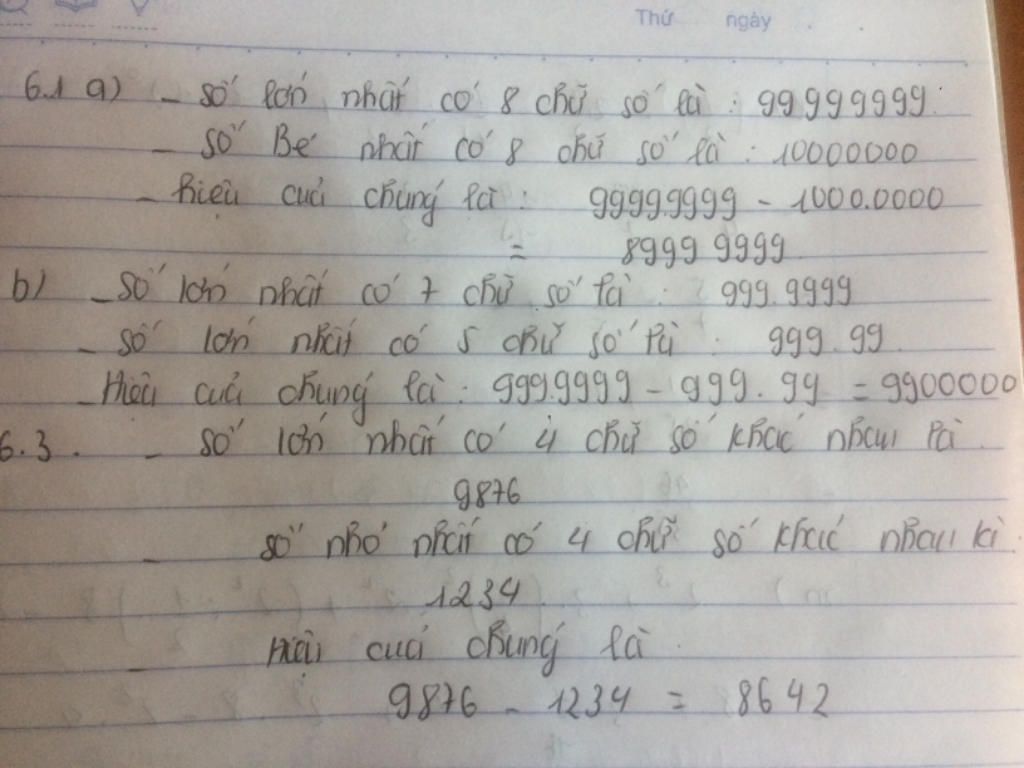 Thứ ngày
6.1 a) - số lớn nhất có 8 chữ số là : 99999999.
- số Bé nhất có 8 chữ số là : 10000000
- hiệu của chúng là : 9999.9999 - 1000.0000
= 8999 9999
b) - số lớn nhất có 7 chữ số là : 999.9999
- số lớn nhất có 5 chữ số là : 999.99
- Hiệu của chúng là : 999.9999 - 999.99 = 9900000
6.3. - số lớn nhất có 4 chữ số khác nhau là.
9876
- số nhỏ nhất có 4 chữ số khác nhau là.
1234
- Hiệu của chúng là.
9876 - 1234 = 8642